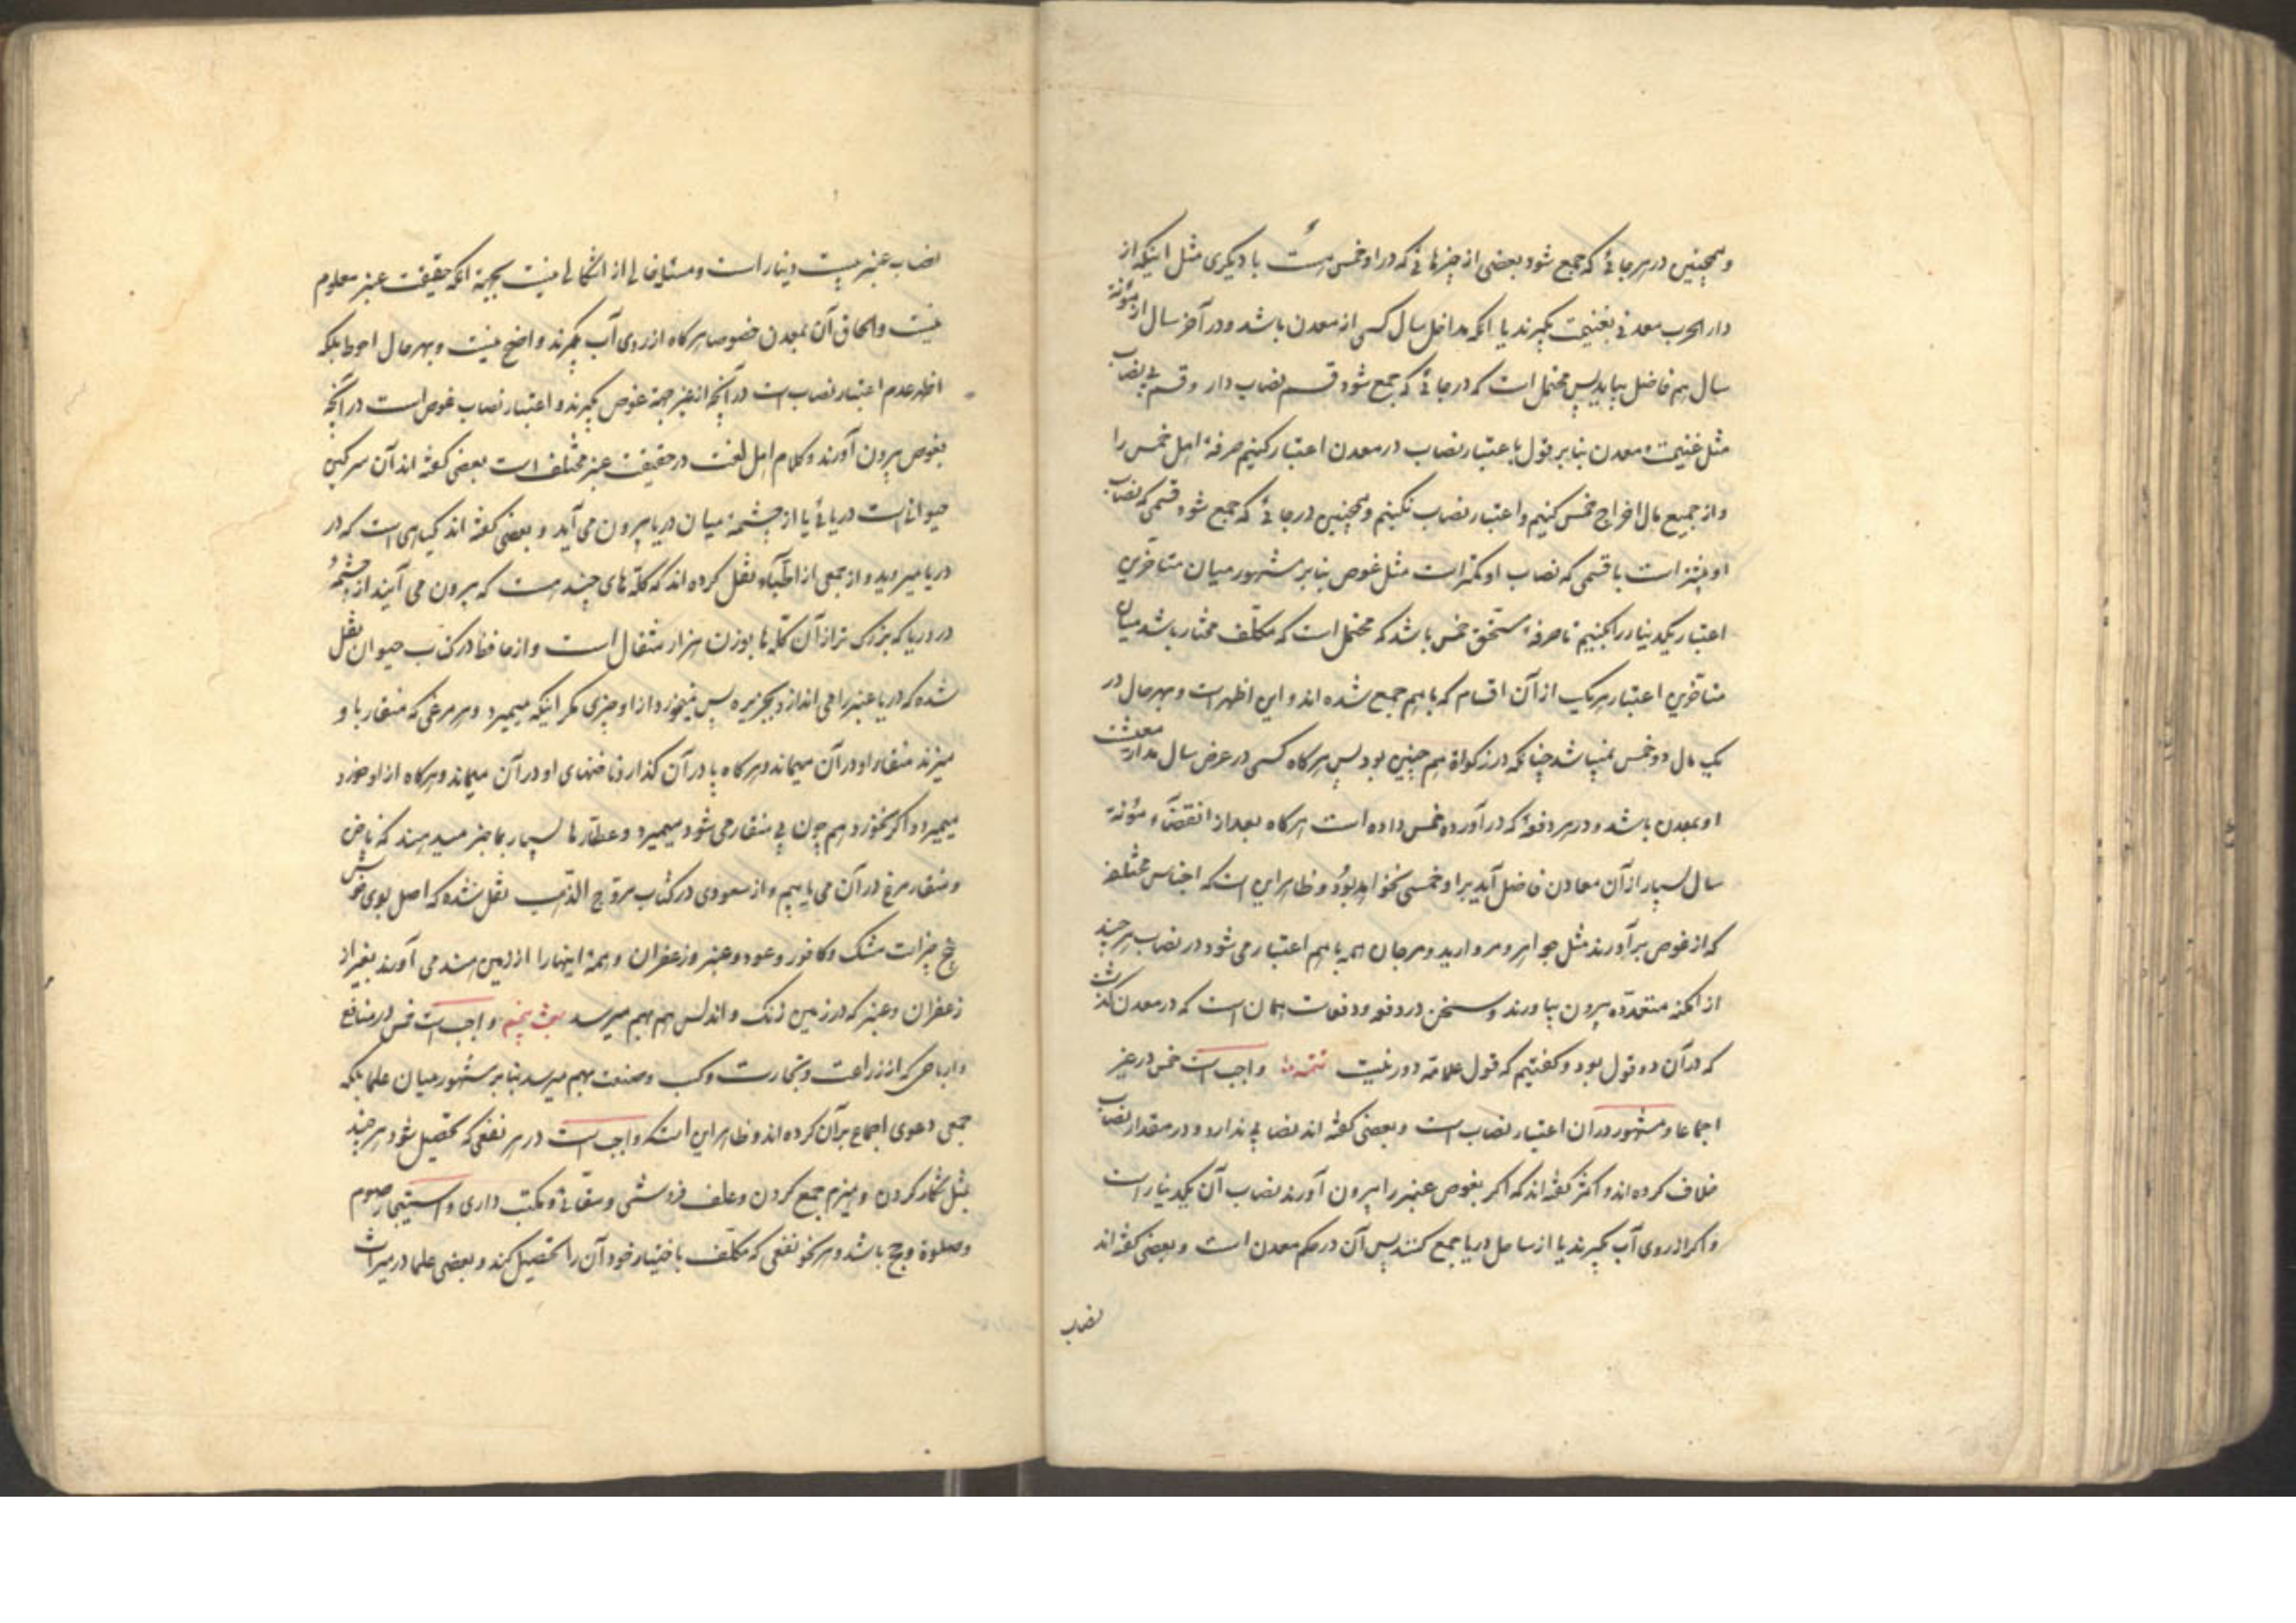 و همچنین در هر جائی که جمع شود بعضی از چیزهائی که در او خمس هست با دیگری مثل اینکه از
دار الحرب معدنی بغنیمت بگیرند یا آنکه مداخل سال کسی از معدن باشد و در آخر سال از مؤنهٔ
سال هم فاضل بیاید پس محتمل است که در جائی که جمع شود قسم نصاب دار و قسم بی نصاب
مثل غنیمت و معدن بنا بر قول باعتبار نصاب در معدن اعتبار کنیم صرفهٔ اهل خمس را
و از جمیع مال اخراج خمس کنیم و اعتبار نصاب نکنیم و همچنین در جائی که جمع شود قسمی که نصاب
او بیشتر است با قسمی که نصاب او کمتر است مثل غوص بنا بر مشهور میان متأخرین
اعتبار یکدینار را بکنیم تا صرفهٔ مستحق خمس باشد که محتمل است که مکلف مختار باشد میان
متأخرین اعتبار هر یک از آن اقسام که با هم جمع شده اند و این اظهر است و بهر حال در
یک مال دو خمس نمیباشد چنانکه در زکواة هم چنین بود پس هر گاه کسی در عرض سال مدار معیشت
او بمعدن باشد و در هر دفعهٔ که در آورده خمس داده است هر گاه بعد از انقضاء مؤنهٔ
سال بسیار از آن معادن فاضل آید بر او خمسی نخواهد بود و ظاهر این است که اجناس مختلفه
که از غوص برآورند مثل جواهر و مروارید و مرجان همه با هم اعتبار می شود در نصاب هر چند
از امکنه متعدّده بیرون بیاورند و سخن در دفعه و دفعات همان است که در معدن گذشت
که در آن دو قول بود و گفتیم که قول علامه دور نیست تتمه واجب است خمس در عنبر
اجماعا و مشهور در ان اعتبار نصاب است و بعضی گفته اند نصابی ندارد و در مقدار نصاب
خلاف کرده اند و اکثر گفته اند که اگر بغوص عنبر را بیرون آورند نصاب آن یکدینار است
و اگر از روی آب بگیرند یا از ساحل دریا جمع کنند پس آن در حکم معدن است و بعضی گفته اند
نصاب
نصاب عنبر بیست دینار است و مسئله خالی از اشکالی نیست بجهة آنکه حقیقت عنبر معلوم
نیست و الحاق آن بمعدن خصوصا هر گاه از روی آب بگیرند واضح نیست و بهر حال احوط بلکه
اظهر عدم اعتبار نصاب است در آنچه از غیر جهة غوص بگیرند و اعتبار نصاب غوص است در آنچه
بغوص بیرون آورند و کلام اهل لغت در حقیقت عنبر مختلف است بعضی گفته اند آن سرگین
حیوانی است دریائی یا از چشمهٔ میان دریا بیرون می آید و بعضی گفته اند گیاهی است که در
دریا میروید و از جمعی از اطبّاء نقل کرده اند که کلّه های چند هست که بیرون می آیند از چشمهٔ
در دریا که بزرگ تر از آن کلّه ها بوزن هزار مثقال است و از جاحظ در کتاب حیوان نقل
شده که دریا عنبر را می اندازد بجزیره پس نمیخورد از او چیزی مگر اینکه میمیرد و هر مرغی که منقار باو
میزند منقار او در آن میماند و هر گاه پا در آن گذارد ناخنهای او در آن میماند و هر گاه از او خورد
میمیرد و اگر نخورد هم چون بی منقار می شود میمیرد و عطّارها بسیار بما خبر میدهند که ناخن
و منقار مرغ در آن می یابیم و از مسعودی در کتاب مروج الذّهب نقل شده که اصل بوی خوش
پنج چیز است مشک و کافور و عود و عنبر و زعفران و همهٔ اینها را از زمین هند می آورند بغیر از
زعفران و عنبر که در زمین زنک و اندلس هم بهم میرسد مبحث پنجم واجب است خمس در منافع
و ارباحی که از زراعت و تجارت و کسب و صنعت بهم میرسد بنا بر مشهور میان علما بلکه
جمعی دعوی اجماع بر آن کرده اند و ظاهر این است که واجب است در هر نفعی که تحصیل شود هر چند
بمثل شکار کردن و هیزم جمع کردن و علف فروشی و سقّائی و مکتب داری و استیجار صوم
و صلوة و حج باشد و هر نحو نفعی که مکلّف باختیار خود آن را تحصیل کند و بعضی علما در میراث